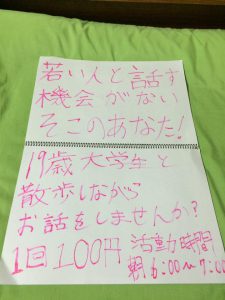 若い人と話す
機会がない
そこのあなた!
19歳大学生と
散歩しながら
お話をしませんか?
1回100円 活動時間
朝6:00~7:00